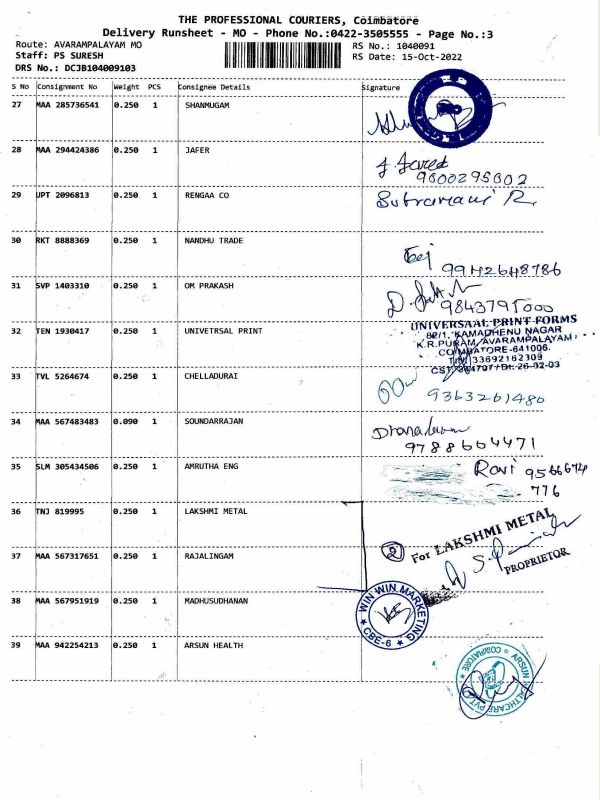 THE PROFESSIONAL COURIERS, Coimbatore
Delivery Runsheet - MO - Phone No.:0422-3505555 - Page No.:3
Route: AVARAMPALAYAM MO RS No.: 1040091
Staff: PS SURESH RS Date: 15-Oct-2022
DRS No.: DCJB104009103
S No Consignment No Weight PCS Consignee Details Signature
27 MAA 285736541 0.250 1 SHANMUGAM
28 MAA 294424386 0.250 1 JAFER
9600295802
29 UPT 2096813 0.250 1 RENGAA CO
Subramani R.
30 RKT 8888369 0.250 1 NANDHU TRADE
9942648786
31 SVP 1403310 0.250 1 OM PRAKASH
9843795000
32 TEN 1930417 0.250 1 UNIVETRSAL PRINT
UNIVERSAAL PRINT FORMS
82/1, KAMADHENU NAGAR
K.R.PURAM, AVARAMPALAYAM
COIMBATORE-641006.
TIN 33692182309
33 TVL 5264674 0.250 1 CHELLADURAI
9363261480
34 MAA 567483483 0.090 1 SOUNDARRAJAN
9788604471
35 SLM 305434506 0.250 1 AMRUTHA ENG
Ravi 9566674
776
36 TNJ 819995 0.250 1 LAKSHMI METAL
For LAKSHMI METAL
PROPRIETOR
37 MAA 567317651 0.250 1 RAJALINGAM
38 MAA 567951919 0.250 1 MADHUSUDHANAN
WIN WIN MARKETING
CBE-6
39 MAA 942254213 0.250 1 ARSUN HEALTH
ARSUN HEALTHCARE PVT
COIMBATORE